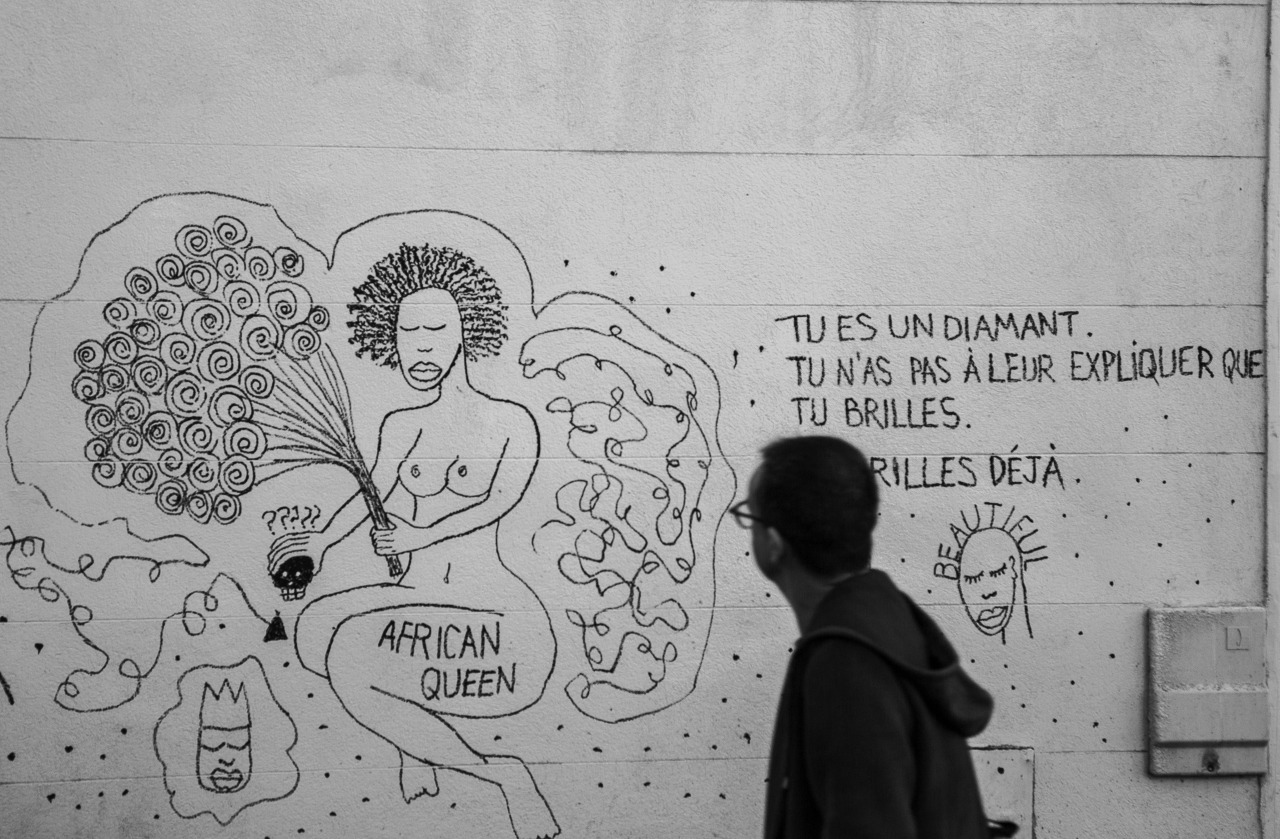 TU ES UN DIAMANT.
TU N'AS PAS À LEUR EXPLIQUER QUE
TU BRILLES.
DÉJÀ.
BEAUTIFUL
????
AFRICAN
QUEEN